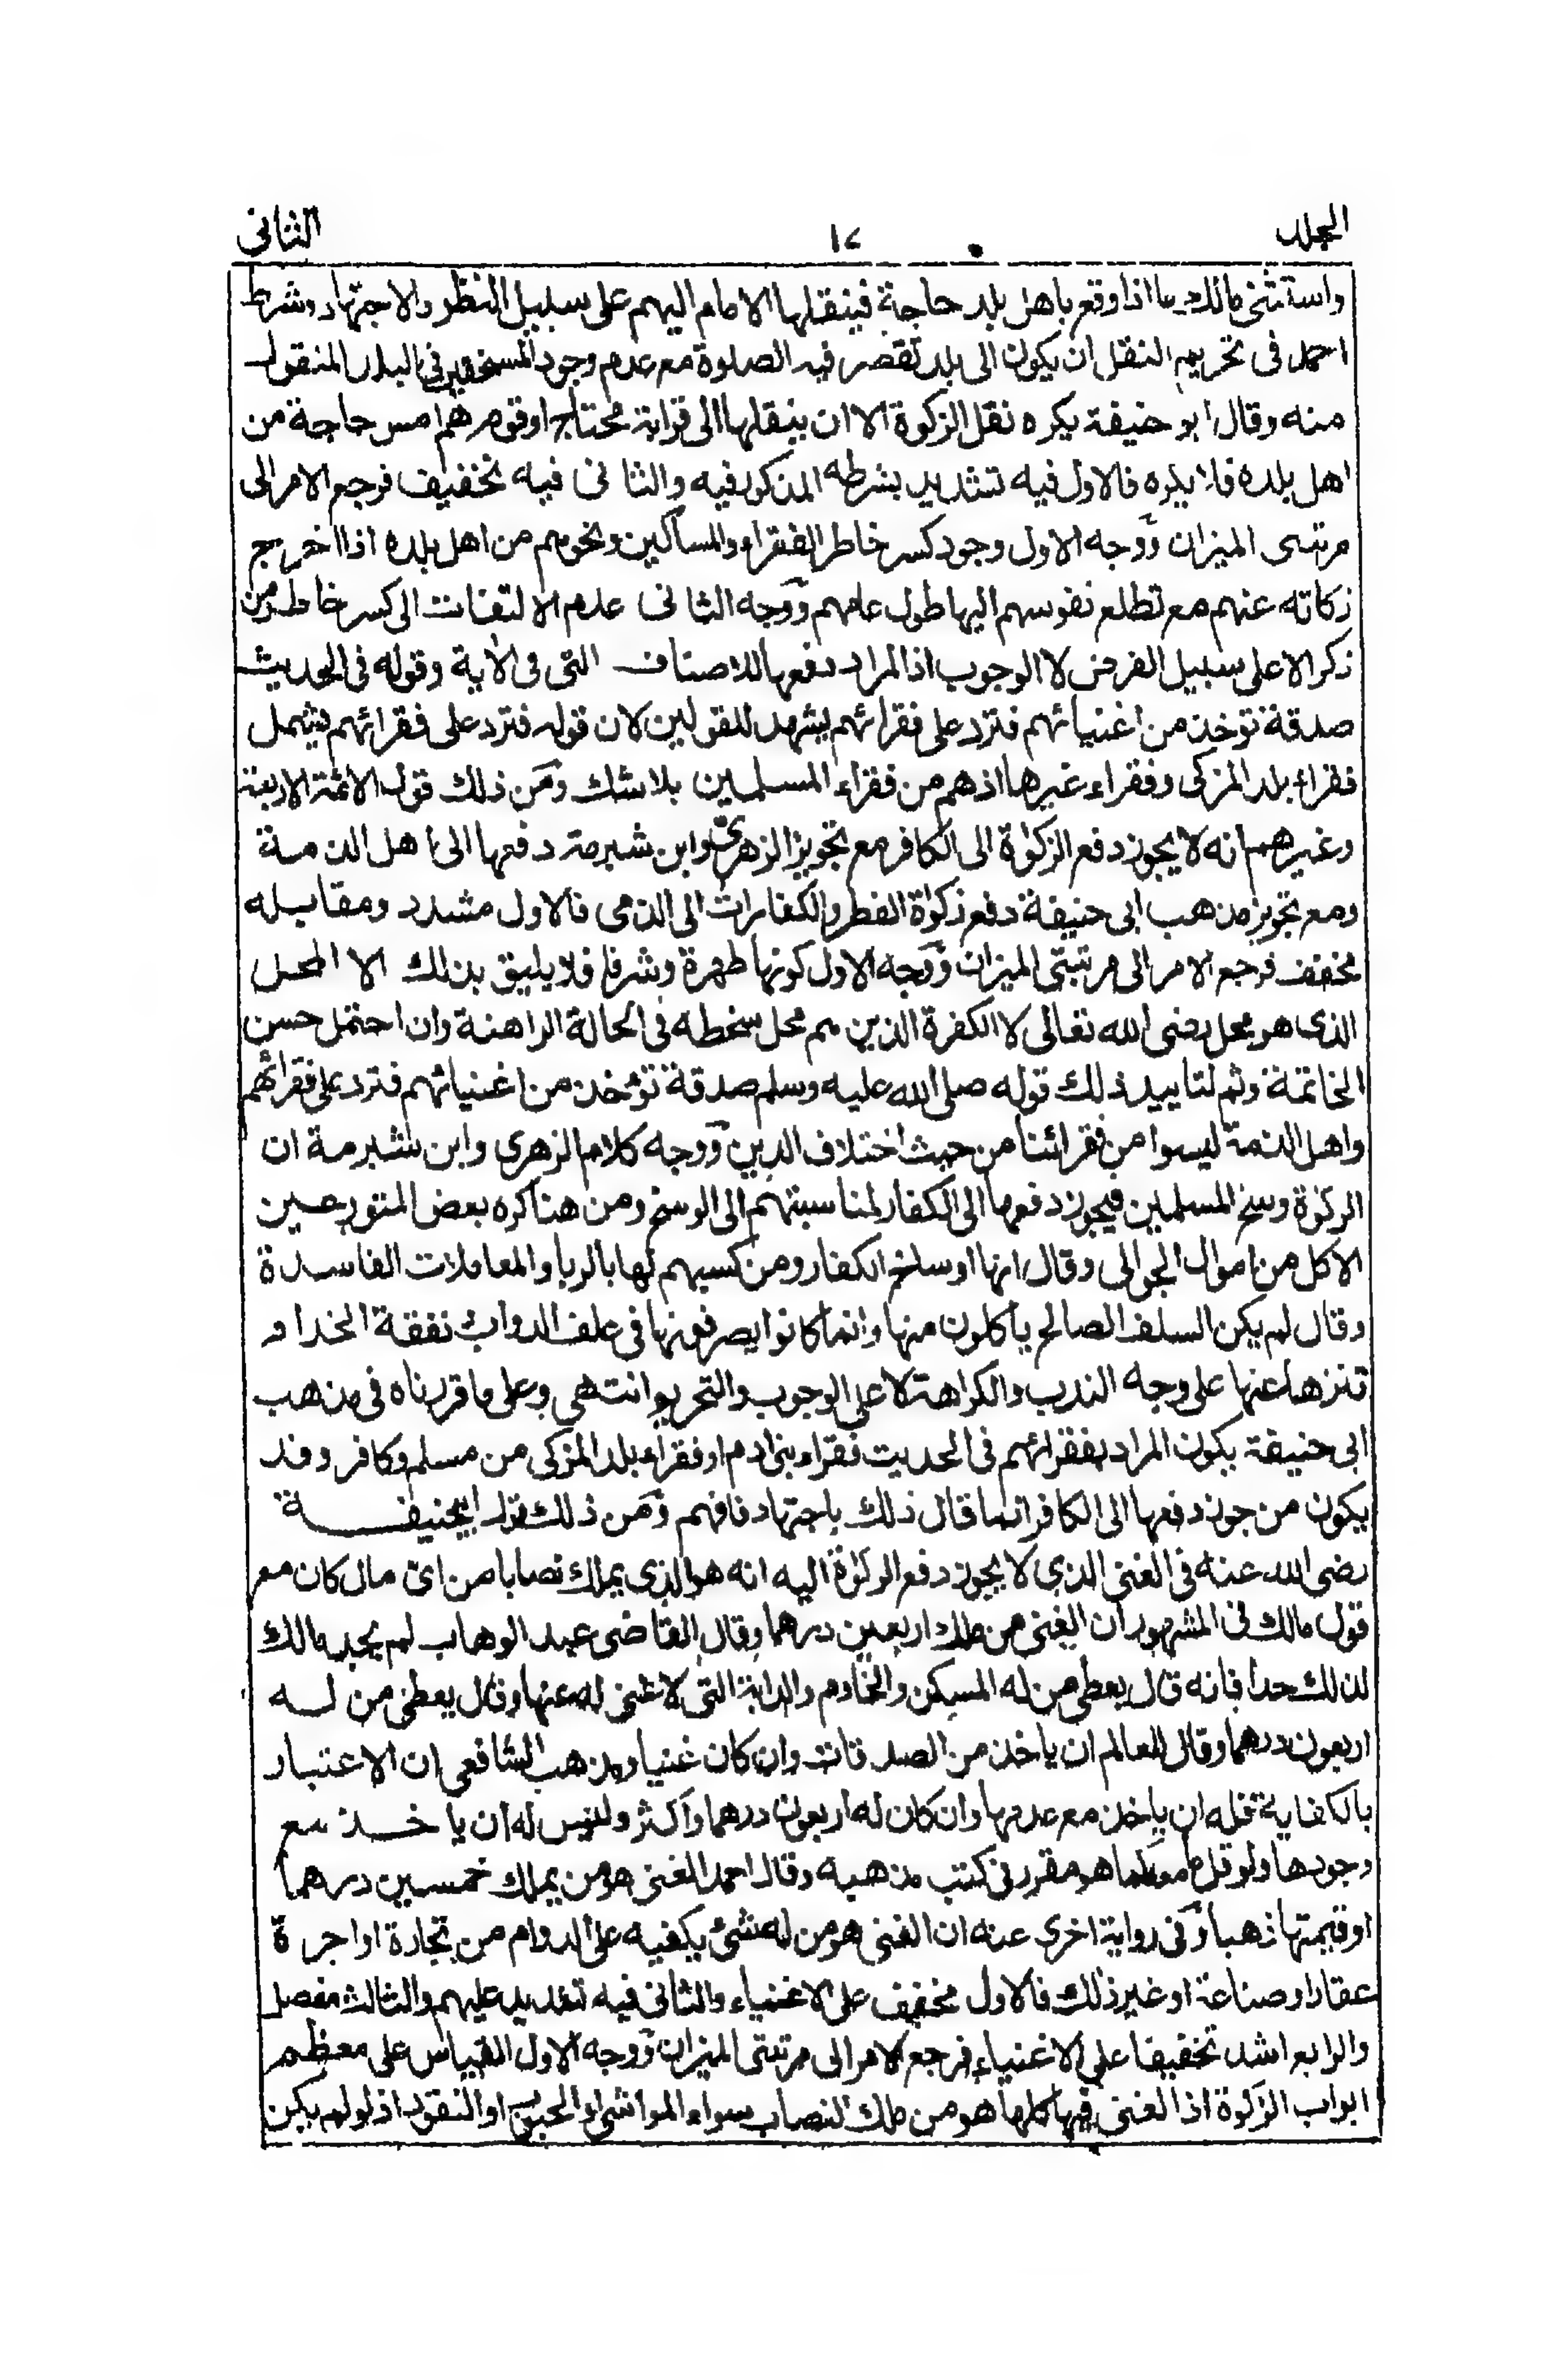 المجلد ١٧ الثانى
واستثنى مالك ما اذا وقع باهل بلد حاجة فينقلها الامام اليهم على سبيل النظر والاجتهاد وشرط
احمد فى تحريم النقل ان يكون الى بلد تقصر فيه الصلوة مع عدم وجود المستحقين فى البلد المنقول
منه وقال ابو حنيفة يكره نقل الزكوة الا ان ينقلها الى قرابة محتاج او قوم هم امس حاجة من
اهل بلده فلا يكره فالاول فيه تشديد بشرطه المذكور فيه والثانى فيه تخفيف فرجع الامر الى
مرتبتى الميزان ووجه الاول وجود كسر خاطر الفقراء والمساكين ونحوهم من اهل بلده اذا اخرج
زكاته عنهم مع تطلع نفوسهم اليها طول عامهم ووجه الثانى عدم الالتفات الى كسر خاطر من
ذكر الا على سبيل الفرض لا الوجوب اذ المراد دفعها للاصناف التى فى الاية وقوله فى الحديث
صدقة تؤخذ من اغنيائهم فترد على فقرائهم يشهد للقولين لان قوله فترد على فقرائهم يشمل
فقراء بلد المزكى وفقراء غيرها اذ هم من فقراء المسلمين بلا شك ومن ذلك قول الائمة الاربعة
وغيرهم انه لا يجوز دفع الزكوة الى الكافر مع تجويز الزهرى وابن شبرمة دفعها الى اهل الذمة
ومع تجويز مذهب ابى حنيفة دفع زكوة الفطر والكفارات الى الذمى فالاول مشدد ومقابله
مخفف فرجع الامر الى مرتبتى الميزان ووجه الاول كونها طهرة وشرفا فلا يليق بذلك الا المحل
الذى هو محل رضى الله تعالى لا الكفرة الذين هم محل سخطه فى الحالة الراهنة وان احتمل حسن
الخاتمة وثم لتاييد ذلك قوله صلى الله عليه وسلم صدقة تؤخذ من اغنيائهم فترد على فقرائهم
واهل الذمة ليسوا من فقرائنا من حيث اختلاف الدين ووجه كلام الزهرى وابن شبرمة ان
الزكوة وسخ المسلمين فيجوز دفعها الى الكفار لمناسبتهم الى الوسخ ومن هنا كره بعض المتورعين
الاكل من اموال الجوالى وقال انها اوساخ الكفار ومن كسبهم لها بالربا والمعاملات الفاسدة
وقال لم يكن السلف الصالح ياكلون منها وانما كانوا يصرفونها فى علف الدواب نفقة الخدام
تنزها عنها على وجه الندب والكراهة لا على الوجوب والتحريم انتهى وعلى ما قررناه فى مذهب
ابى حنيفة يكون المراد بفقرائهم فى الحديث فقراء بنى ادم او فقراء بلد المزكى من مسلم وكافر وقد
يكون من جوز دفعها الى الكافر انما قال ذلك باجتهاد فافهم ومن ذلك قول ابيحنيفة
رضى الله عنه فى الغنى الذى لا يجوز دفع الزكوة اليه انه هو الذى يملك نصابا من اى مال كان مع
قول مالك فى المشهور ان الغنى من ملك اربعين درهما وقال القاضى عبد الوهاب لم يحد مالك
لذلك حدا فانه قال يعطى من له المسكن والخادم والدابة التى لا غنى له عنها وقال يعطى من له
اربعون درهما وقال للعالم ان ياخذ من الصدقات وان كان غنيا ومذهب الشافعى ان الاعتبار
بالكفاية فله ان ياخذ مع عدمها وان كان له اربعون درهما واكثر وليس له ان ياخذ مع
وجودها ولو قل ما معه كما هو مقرر فى كتب مذهبه وقال احمد الغنى هو من يملك خمسين درهما
او قيمتها ذهبا وفى رواية اخرى عنه ان الغنى هو من له شئ يكفيه على الدوام من تجارة او اجرة
عقار او صناعة او غير ذلك فالاول مخفف على الاغنياء والثانى فيه تشديد عليهم والثالث مفصل
والرابع اشد تخفيفا على الاغنياء فرجع الامر الى مرتبتى الميزان ووجه الاول القياس على معظم
ابواب الزكوة اذ الغنى فيها كلها هو من ملك النصاب سواء المواشى او الحبوب او النقود اذ لو لم يكن